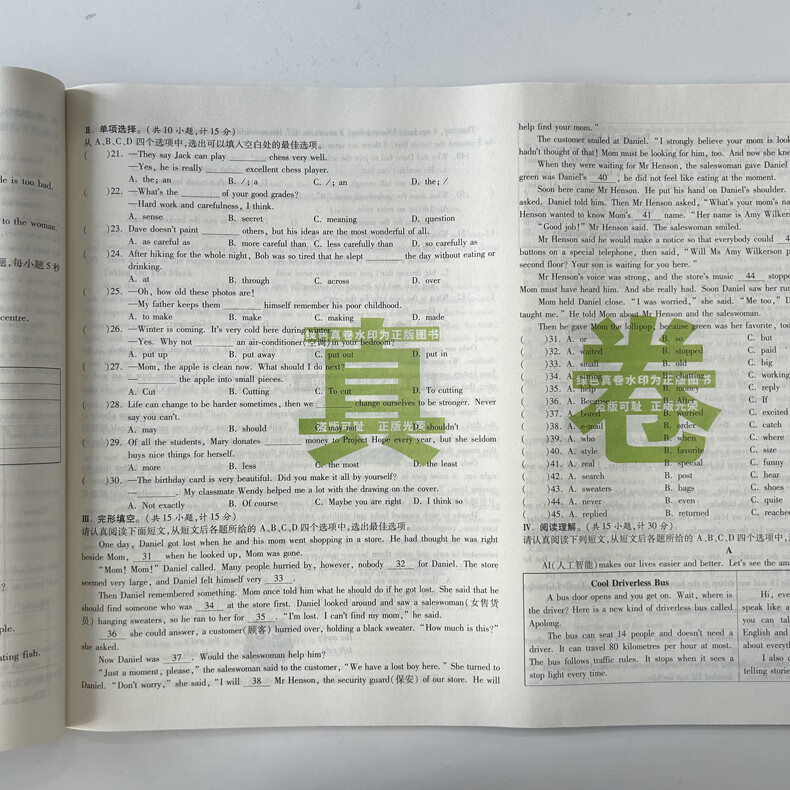 de is too bad.
to the woman.
题,每小题5秒
centre.
?
ple.
ating fish.
Ⅱ. 单项选择。(共10小题,计15分)
从A、B、C、D四个选项中,选出可以填入空白处的最佳选项。
( )21. —They say Jack can play ______ chess very well.
—Yes, he is really ______ excellent chess player.
A. the; an B. /; a C. /; an D. the; /
( )22. —What's the ______ of your good grades?
—Hard work and carefulness, I think.
A. sense B. secret C. meaning D. question
( )23. Dave doesn't paint ______ others, but his ideas are the most wonderful of all.
A. as careful as B. more careful than C. less carefully than D. so carefully as
( )24. After hiking for the whole night, Bob was so tired that he slept ______ the day without eating or
drinking.
A. at B. through C. across D. over
( )25. —Oh, how old these photos are!
—My father keeps them ______ himself remember his poor childhood.
A. to make B. make C. making D. made
( )26. —Winter is coming. It's very cold here during winter.
—Yes. Why not ______ an air-conditioner(空调)in your bedroom?
A. put up B. put away C. put out D. put in
( )27. —Mom, the apple is clean now. What should I do next?
—______ the apple into small pieces.
A. Cut B. Cutting C. To cut D. To cutting
( )28. Life can change to be harder sometimes, then we ______ change ourselves to be stronger. Never
say you can't.
A. may B. should C. may not D. shouldn't
( )29. Of all the students, Mary donates ______ money to Project Hope every year, but she seldom
buys nice things for herself.
A. more B. less C. the most D. the least
( )30. —The birthday card is very beautiful. Did you make it all by yourself?
—______. My classmate Wendy helped me a lot with the drawing on the cover.
A. Not exactly B. Of course C. Maybe you are right D. I think so
Ⅲ. 完形填空。(共15小题,计15分)
请认真阅读下面短文,从短文后各题所给的A、B、C、D四个选项中,选出最佳选项。
One day, Daniel got lost when he and his mom went shopping in a store. He had thought he was right
beside Mom, 31 when he looked up, Mom was gone.
"Mom! Mom!" Daniel called. Many people hurried by, however, nobody 32 for Daniel. The store
seemed very large, and Daniel felt himself very 33 .
Then Daniel remembered something. Mom once told him what he should do if he got lost. She said that he
should find someone who was 34 at the store first. Daniel looked around and saw a saleswoman(女售货
员) hanging sweaters, so he ran to her for 35 . "I'm lost. I can't find my mom," he said.
36 she could answer, a customer(顾客) hurried over, holding a black sweater. "How much is this?"
she asked.
Now Daniel was 37 . Would the saleswoman help him?
"Just a moment, please," the saleswoman said to the customer, "We have a lost boy here." She turned to
Daniel. "Don't worry," she said, "I will 38 Mr Henson, the security guard(保安) of our store. He will
help find your mom."
The customer smiled at Daniel. "I strongly believe your mom is look
hadn't thought of that! Mom must be looking for him, too. And now she kne
When they were waiting for Mr Henson, the saleswoman gave Daniel
green was Daniel's 40 , he did not feel like eating at the moment.
Soon here came Mr Henson. He put his hand on Daniel's shoulder.
asked. Daniel told him. Then Mr Henson asked, "What's your mom's na
Henson wanted to know Mom's 41 name. "Her name is Amy Wilkers
"Good job!" Mr Henson said. The saleswoman smiled.
Mr Henson said he would make a notice so that everybody could 4
buttons on a special telephone, then said, "Will Ms Amy Wilkerson p
second floor? Your son is waiting for you here."
Mr Henson's voice was strong, and the store's music 44 stoppe
Mom must have heard him. And she really had. Soon Daniel saw her run
Mom held Daniel close. "I was worried," she said. "Me too," D
taught me." He told Mom about Mr Henson and the saleswoman.
Then he gave Mom the lollipop, because green was her favorite, too
( )31. A. or B. so C. but
( )32. A. waited B. stopped C. paid
( )33. A. small B. old C. big
( )34. A. sitting B. chatting C. working
( )35. A. help B. money C. reply
( )36. A. Because B. After C. If
( )37. A. bored B. worried C. excited
( )38. A. email B. order C. catch
( )39. A. who B. when C. where
( )40. A. style B. favorite C. size
( )41. A. real B. special C. funny
( )42. A. search B. post C. hear
( )43. A. sweaters B. bags C. shoes
( )44. A. never B. even C. quite
( )45. A. replied B. returned C. reache
Ⅳ. 阅读理解。(共15小题,计30分)
请认真阅读下列短文,从短文后各题所给的A、B、C、D四个选项中,
A
AI(人工智能)makes our lives easier and better. Let's see the ama
Cool Driverless Bus
A bus door opens and you get on. Wait, where is
the driver? Here is a new kind of driverless bus called
Apolong.
The bus can seat 14 people and doesn't need a
driver. It can travel 80 kilometres per hour at most.
The bus follows traffic rules. It stops when it sees a
stop light every time.
Hi, eve
speak like a
you can tal
English and
about everyth
I also c
telling storie
真卷
绿色真卷水印为正版图书
盗版可耻 正版光荣
绿色真卷水印为正版图书
盗版可耻 正版光荣